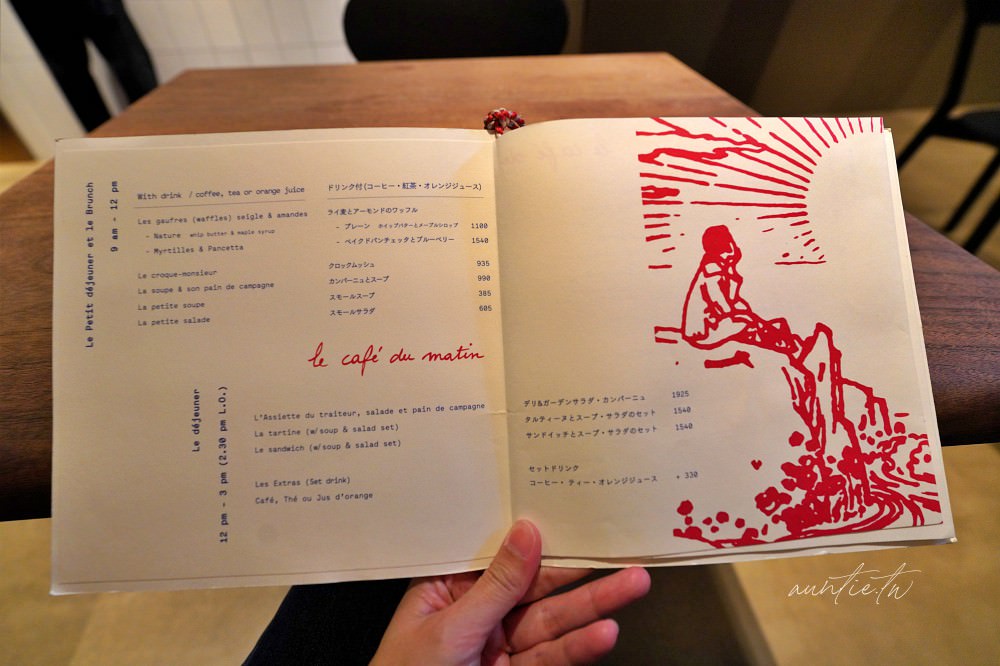 Le Petit déjeuner et le Brunch
9 am - 12 pm
With drink / coffee, tea or orange juice
ドリンク付(コーヒー・紅茶・オレンジジュース)
Les gaufres (waffles) seigle & amandes
ライ麦とアーモンドのワッフル
- Nature whip butter & maple syrup
- プレーン ホイップバターとメープルシロップ 1100
- Myrtilles & Pancetta
- ベイクドパンチェッタとブルーベリー 1540
Le croque-monsieur
クロックムッシュ 935
La soupe & son pain de campagne
カンパーニュとスープ 990
La petite soupe
スモールスープ 385
La petite salade
スモールサラダ 605
le café du matin
Le déjeuner
12 pm - 3 pm (2.30 pm L.O.)
L'Assiette du traiteur, salade et pain de campagne
デリ&ガーデンサラダ・カンパーニュ 1925
La tartine (w/soup & salad set)
タルティーヌとスープ・サラダのセット 1540
Le sandwich (w/soup & salad set)
サンドイッチとスープ・サラダのセット 1540
Les Extras (Set drink)
セットドリンク
Café, Thé ou Jus d'orange
コーヒー・ティー・オレンジジュース + 330
auntie.tw